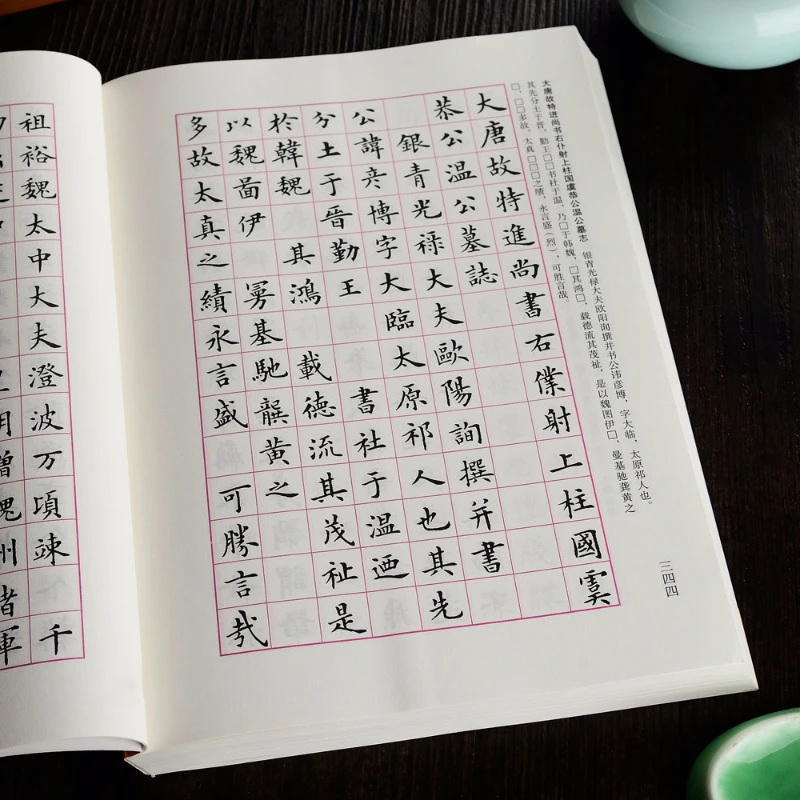 大唐故特进尚书右仆射上柱国虞恭公温公墓志 银青光禄大夫欧阳询撰并书公讳彦博，字大临，太原祁人也。
其先分土于晋，勤王□□书社于温，乃□于韩魏，□其鸿□，载德流其茂祉，是以魏图伊□，曼基驰龚黄之
□，□□多故，太真□□□之绩，永言盛（烈），可胜言哉。
三四四
大唐故特進尚書右僕射上柱國虞
恭公温公墓誌
銀青光禄大夫歐陽詢撰并書
公諱彦博字大臨太原祁人也其先
分土于晉勤王 書社于温迺
於韓魏 其鴻 載德流其茂祉是
以魏啚伊 曼基馳龔黄之
多故太真之績永言盛 可勝言哉
祖裕魏太中大夫澄波万頃竦 千